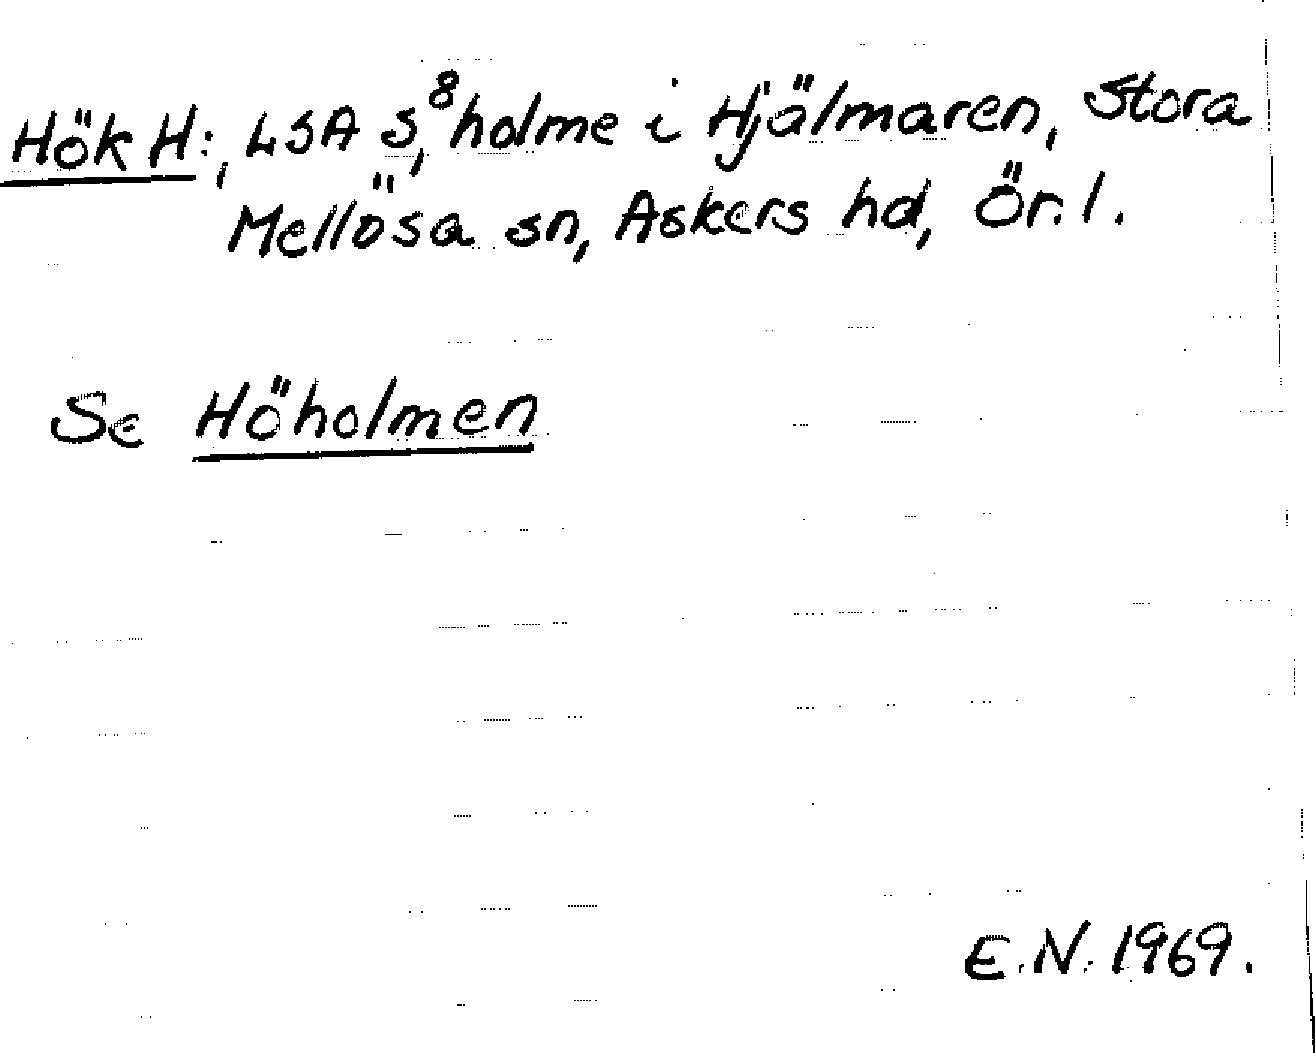 Hök H:, LSA S⁸, holme i Hjälmaren, Stora
Mellösa sn, Askers hd, Ör. l.
Se Höholmen
E.N. 1969.